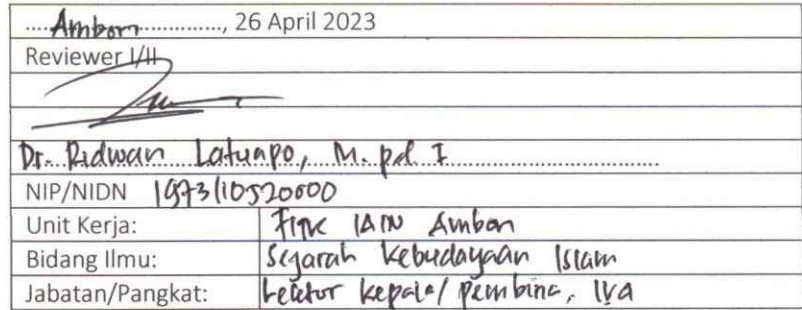 ....Ambon..............., 26 April 2023
Reviewer I/II
Dr. Ridwan Latuapo, M. pd. I
NIP/NIDN
Unit Kerja: FITK IAIN Ambon
Bidang Ilmu: Sejarah Kebudayaan Islam
Jabatan/Pangkat: Lektor kepala/ pembina, IVa